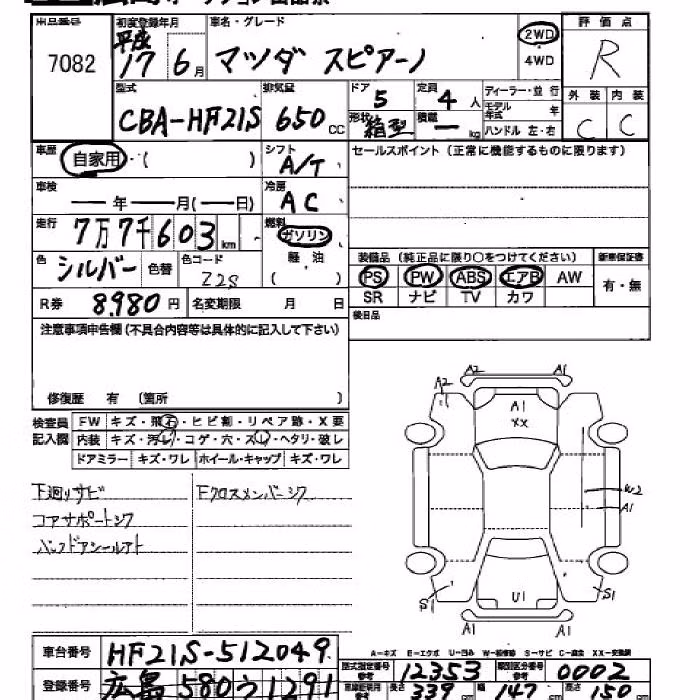 出品番号 初度登録年月 車名・グレード 2WD 評価点
7082 平成 17 6月 マツダ スピアーノ 4WD R
型式 排気量 ドア 5 定員 4人 ディーラー・並行 外装 内装
CBA-HF21S 650cc 形状 箱型 積載 ー kg モデル年式 年 C C
ハンドル 左・右
車歴 自家用・( ) シフト A/T セールスポイント(正常に機能するものに限ります)
車検 ー年ー月(ー日) 冷房 AC
走行 7万7千603km 燃料 ガソリン
色 シルバー 色替 色コード Z2S 軽・油 ( )
装備品(純正品に限り○をつけてください) 新車保証書
PS PW ABS エアB AW 有・無
SR ナビ TV カワ
R券 8,980円 名変期限 月 日 後日品
注意事項申告欄(不具合内容等は具体的に記入して下さい)
修復歴 有 (箇所 )
検査員記入欄 FW キズ・飛石・ヒビ割・リペア跡・X要
内装 キズ・汚レ・コゲ・穴・スレ・ヘタリ・破レ
ドアミラー キズ・ワレ ホイール・キャップ キズ・ワレ
下廻リサビ Fクロスメンバーシワ
コアサポートシワ
バックドアシールアト
A2 A1
A2 A1
XX
W2
A1
S1 U1 S1
A1 A1
車台番号 HF21S-512049
A-キズ E-エクボ U-凹み W-補修跡 S-サビ C-腐食 XX-交換跡
型式指定番号 参考 12353 類別区分番号 参考 0002
登録番号 広島 580 う 1291
長さ 339 幅 147 高さ 150